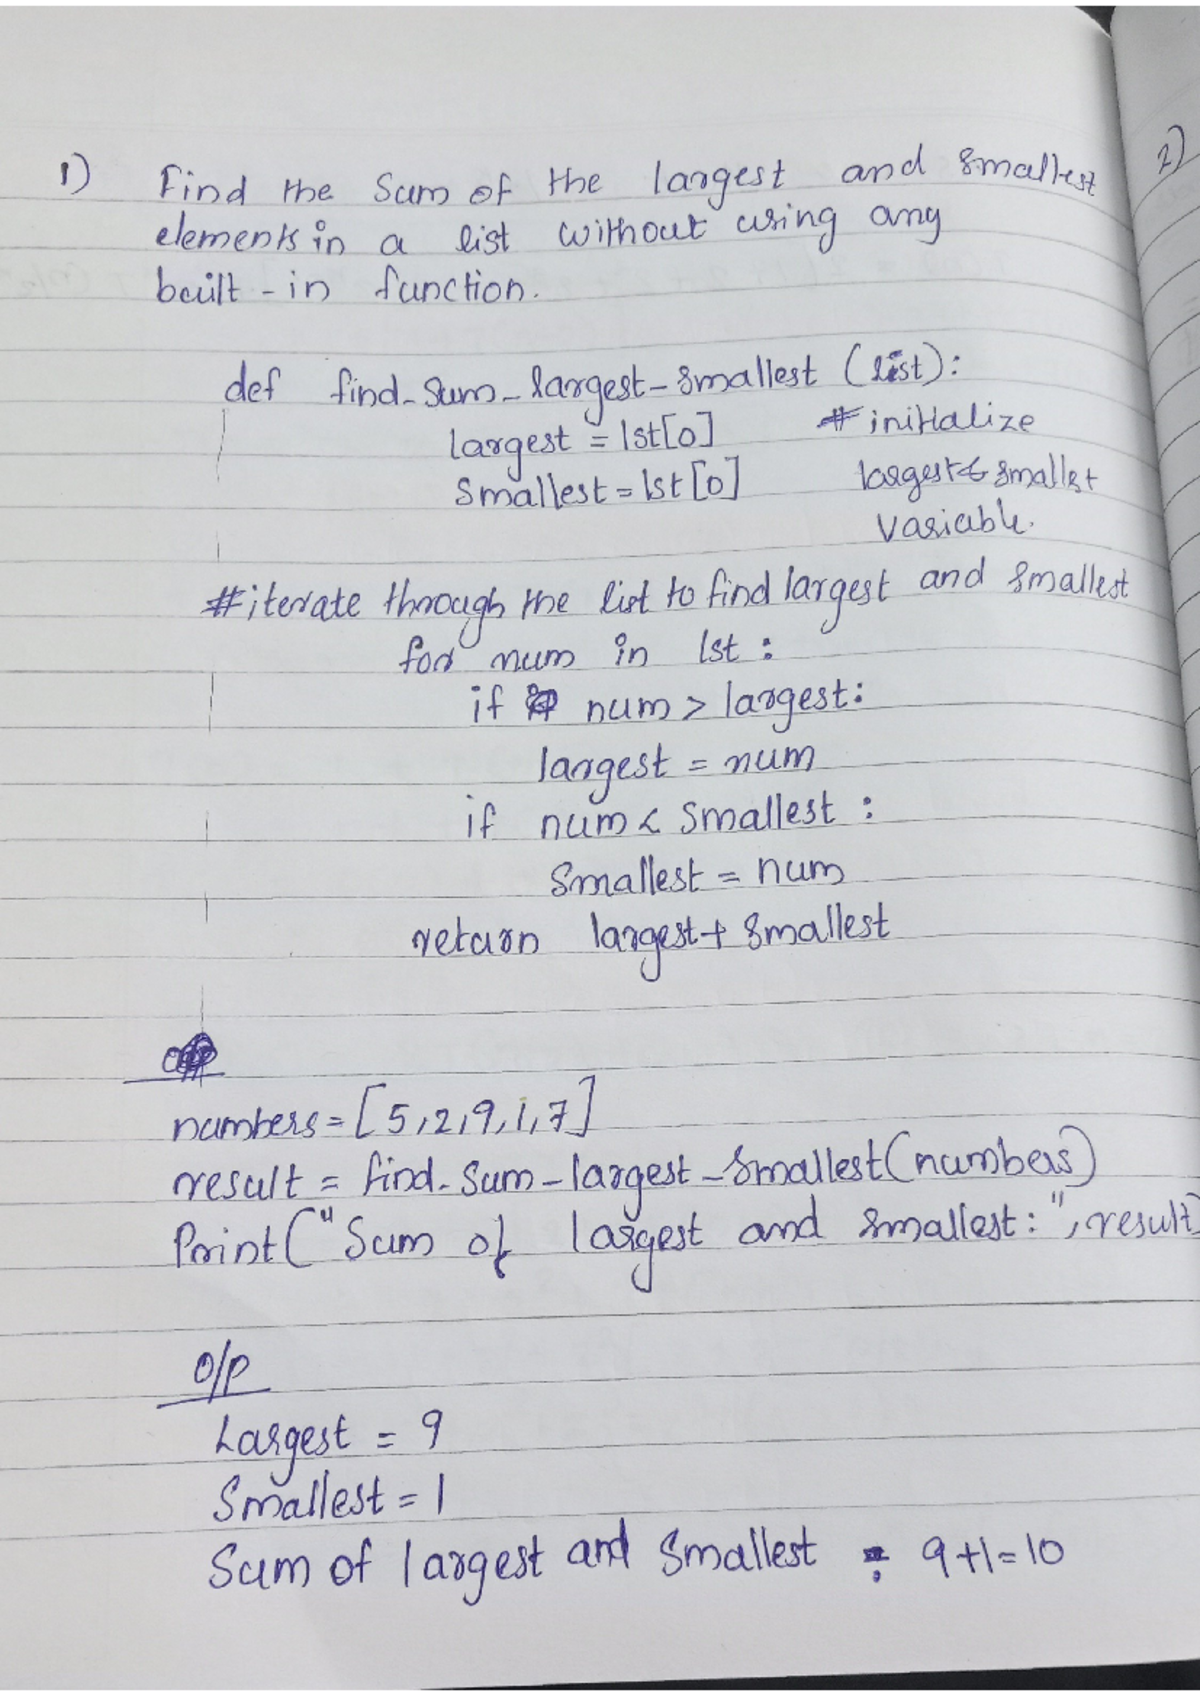 1) Find the Sum of the largest and smallest
elements in a list without using any
built-in function.
def find_sum_largest_smallest (list):
largest = lst[0] # initialize
smallest = lst[0] largest & smallest
variable.
# iterate through the list to find largest and smallest
for num in lst :
if num > largest:
largest = num
if num < smallest :
smallest = num
return largest + smallest
numbers = [5,2,9,1,7]
result = find_sum_largest_smallest(numbers)
Print("Sum of largest and smallest:", result)
O/P
Largest = 9
Smallest = 1
Sum of largest and smallest : 9+1=10
2)